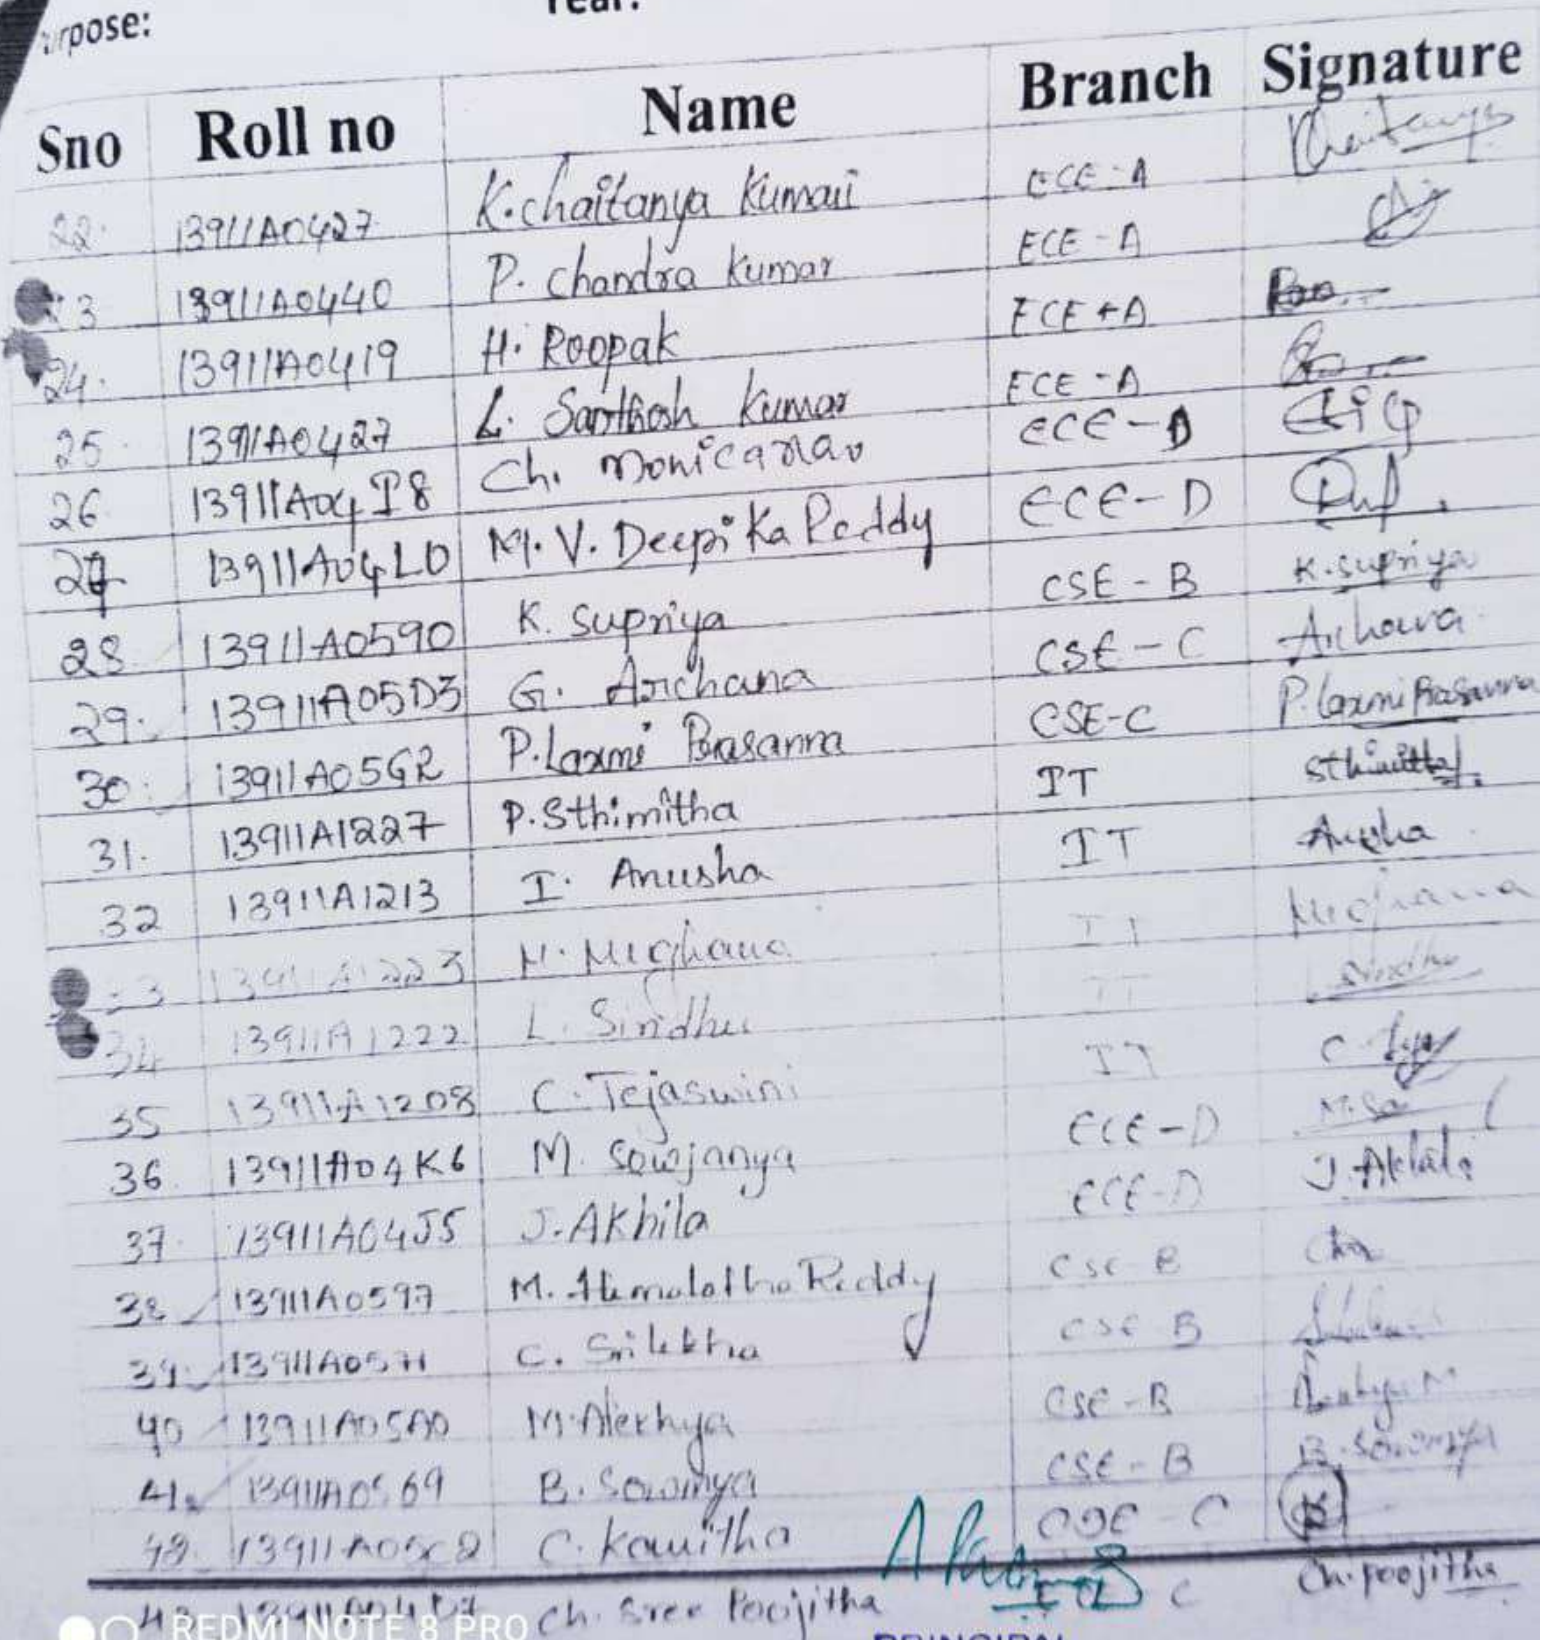 Year:
Sno Roll no Name Branch Signature
22. 13911A0427 K.chaitanya Kumari ECE-A Chaitanya
13911A0440 P. Chandra Kumar ECE-A
24. 13911A0419 H. Roopak ECE-A
25 13911A0427 L. Santhosh Kumar ECE-A
26 13911A04I8 Ch. Monicarao ECE-D
27 13911A04L0 M. V. Deepika Reddy ECE-D
28 13911A0590 K. Supriya CSE-B K.Supriya
29. 13911A05D3 G. Archana CSE-C Archana
30. 13911A05G2 P.Laxmi Prasanna CSE-C P.laxmi Prasanna
31. 13911A1227 P.Sthimitha IT Sthimitha
32 13911A1213 I. Anusha IT Anusha
33 13911A1223 N. Meghana IT Meghana
34 13911A1222 L. Sindhu IT
35 13911A1208 C. Tejaswini IT
36 13911A04K6 M. Sowjanya ECE-D
37. 13911A04J5 J.Akhila ECE-D J.Akhila
38 13911A0597 M. Hemalatha Reddy CSE-B
39. 13911A0571 C. Srilekha CSE-B
40 13911A05A0 M.Alekhya CSE-B
41. 13911A0569 B. Sowmya CSE-B B.Sowmya
42. 13911A05C2 C. Kavitha CSE-C
43. Ch. Sree Poojitha C Ch.Poojitha
REDMI NOTE 8 PRO
PRINCIPAL